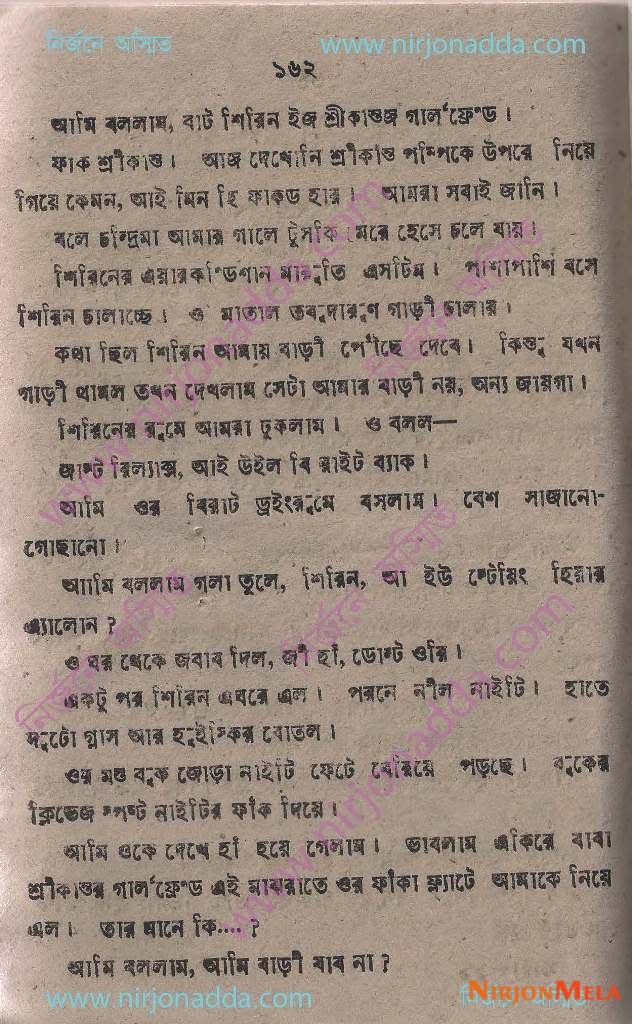 নির্জনে অস্মিত www.nirjonadda.com
১৬২
আমি বললাম, বাট শিরিন ইজ শ্রীকান্তজ গার্লফ্রেন্ড।
ফাক শ্রীকান্ত। আজ দেখোনি শ্রীকান্ত পম্পিকে উপরে নিয়ে
গিয়ে কেমন, আই মিন হি ফাকড হার। আমরা সবাই জানি।
বলে চন্দ্রিমা আমার গালে টুসকি মেরে হেসে চলে যায়।
শিরিনের এয়ারকন্ডিশান মারুতি এসটিম। পাশাপাশি বসে
শিরিন চালাচ্ছে। ও মাতাল তবু দারুণ গাড়ী চালায়।
কথা ছিল শিরিন আমায় বাড়ী পৌঁছে দেবে। কিন্তু যখন
গাড়ী থামল তখন দেখলাম সেটা আমার বাড়ী নয়, অন্য জায়গা।
শিরিনের রুমে আমরা ঢুকলাম। ও বলল—
জাস্ট রিল্যাক্স, আই উইল বি রাইট ব্যাক।
আমি ওর বিরাট ড্রইংরুমে বসলাম। বেশ সাজানো-
গোছানো।
আমি বললাম গলা তুলে, শিরিন, আ ইউ স্টেয়িং হিয়ার
এ্যালোন ?
ও ঘর থেকে জবাব দিল, জী হাঁ, ডোন্ট ওরি।
একটু পর শিরিন এঘরে এল। পরনে নীল নাইটি। হাতে
দুটো গ্লাস আর হুইস্কির বোতল।
ওর মস্ত বুক জোড়া নাইটি ফেটে বেরিয়ে পড়ছে। বুকের
ক্লিভেজ স্পষ্ট নাইটির ফাঁক দিয়ে।
আমি ওকে দেখে হাঁ হয়ে গেলাম। ভাবলাম একিরে বাবা
শ্রীকান্তর গার্লফ্রেন্ড এই মাঝরাতে ওর ফাঁকা ফ্ল্যাটে আমাকে নিয়ে
এল। তার মানে কি....?
আমি বললাম, আমি বাড়ী যাব না ?
www.nirjonadda.com
NIRJONMELA